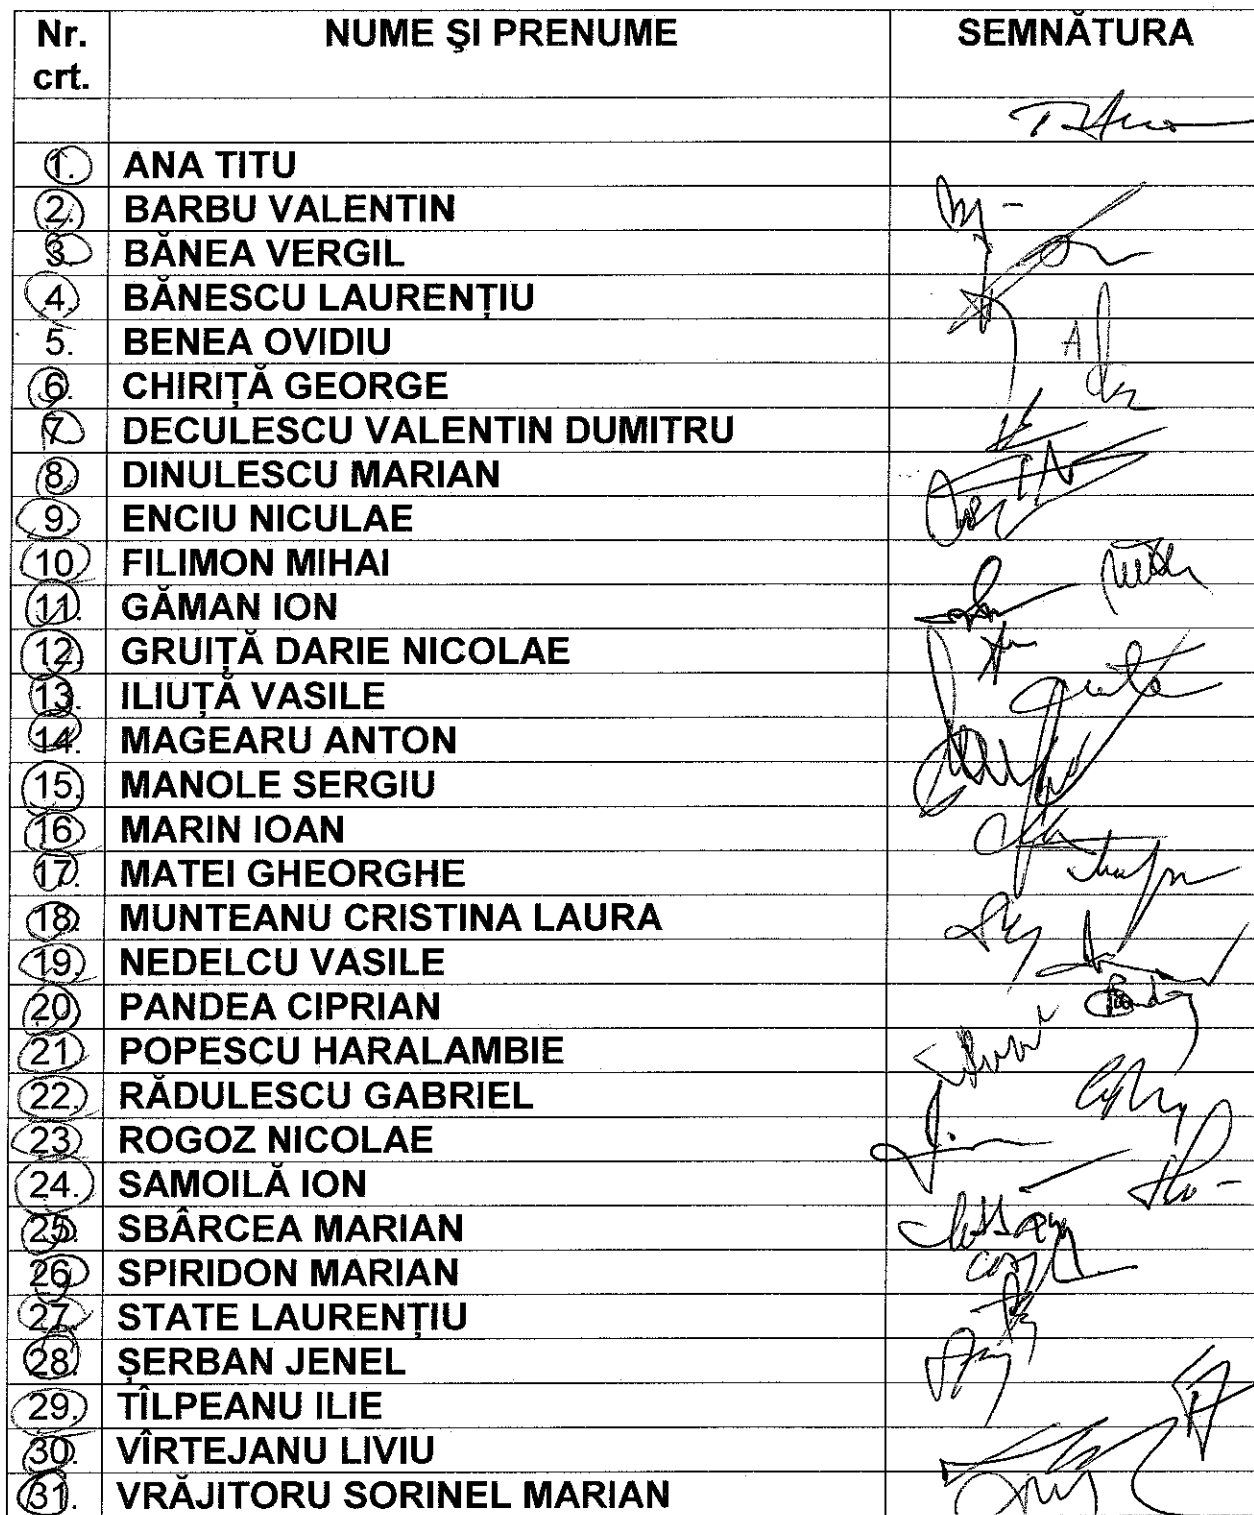 Nr. crt. NUME ŞI PRENUME SEMNĂTURA
1. ANA TITU
2. BARBU VALENTIN
3. BĂNEA VERGIL
4. BĂNESCU LAURENȚIU
5. BENEA OVIDIU
6. CHIRIȚĂ GEORGE
7. DECULESCU VALENTIN DUMITRU
8. DINULESCU MARIAN
9. ENCIU NICULAE
10. FILIMON MIHAI
11. GĂMAN ION
12. GRUIȚĂ DARIE NICOLAE
13. ILIUȚĂ VASILE
14. MAGEARU ANTON
15. MANOLE SERGIU
16. MARIN IOAN
17. MATEI GHEORGHE
18. MUNTEANU CRISTINA LAURA
19. NEDELCU VASILE
20. PANDEA CIPRIAN
21. POPESCU HARALAMBIE
22. RĂDULESCU GABRIEL
23. ROGOZ NICOLAE
24. SAMOILĂ ION
25. SBÂRCEA MARIAN
26. SPIRIDON MARIAN
27. STATE LAURENȚIU
28. ȘERBAN JENEL
29. TÎLPEANU ILIE
30. VÎRTEJANU LIVIU
31. VRĂJITORU SORINEL MARIAN